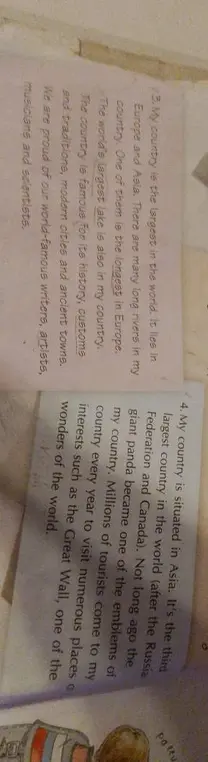 3. My country is the largest in the world. It lies in
Europe and Asia. There are many long rivers in my
country. One of them is the longest in Europe.
The world's largest lake is also in my country.
The country is famous for its history, customs
and traditions, modern cities and ancient towns.
We are proud of our world-famous writers, artists,
musicians and scientists.
4. My country is situated in Asia. It's the third
largest country in the world (after the Russia
Federation and Canada). Not long ago the
giant panda became one of the emblems of
my country. Millions of tourists come to my
country every year to visit numerous places o
interests such as the Great Wall, one of the
wonders of the world.